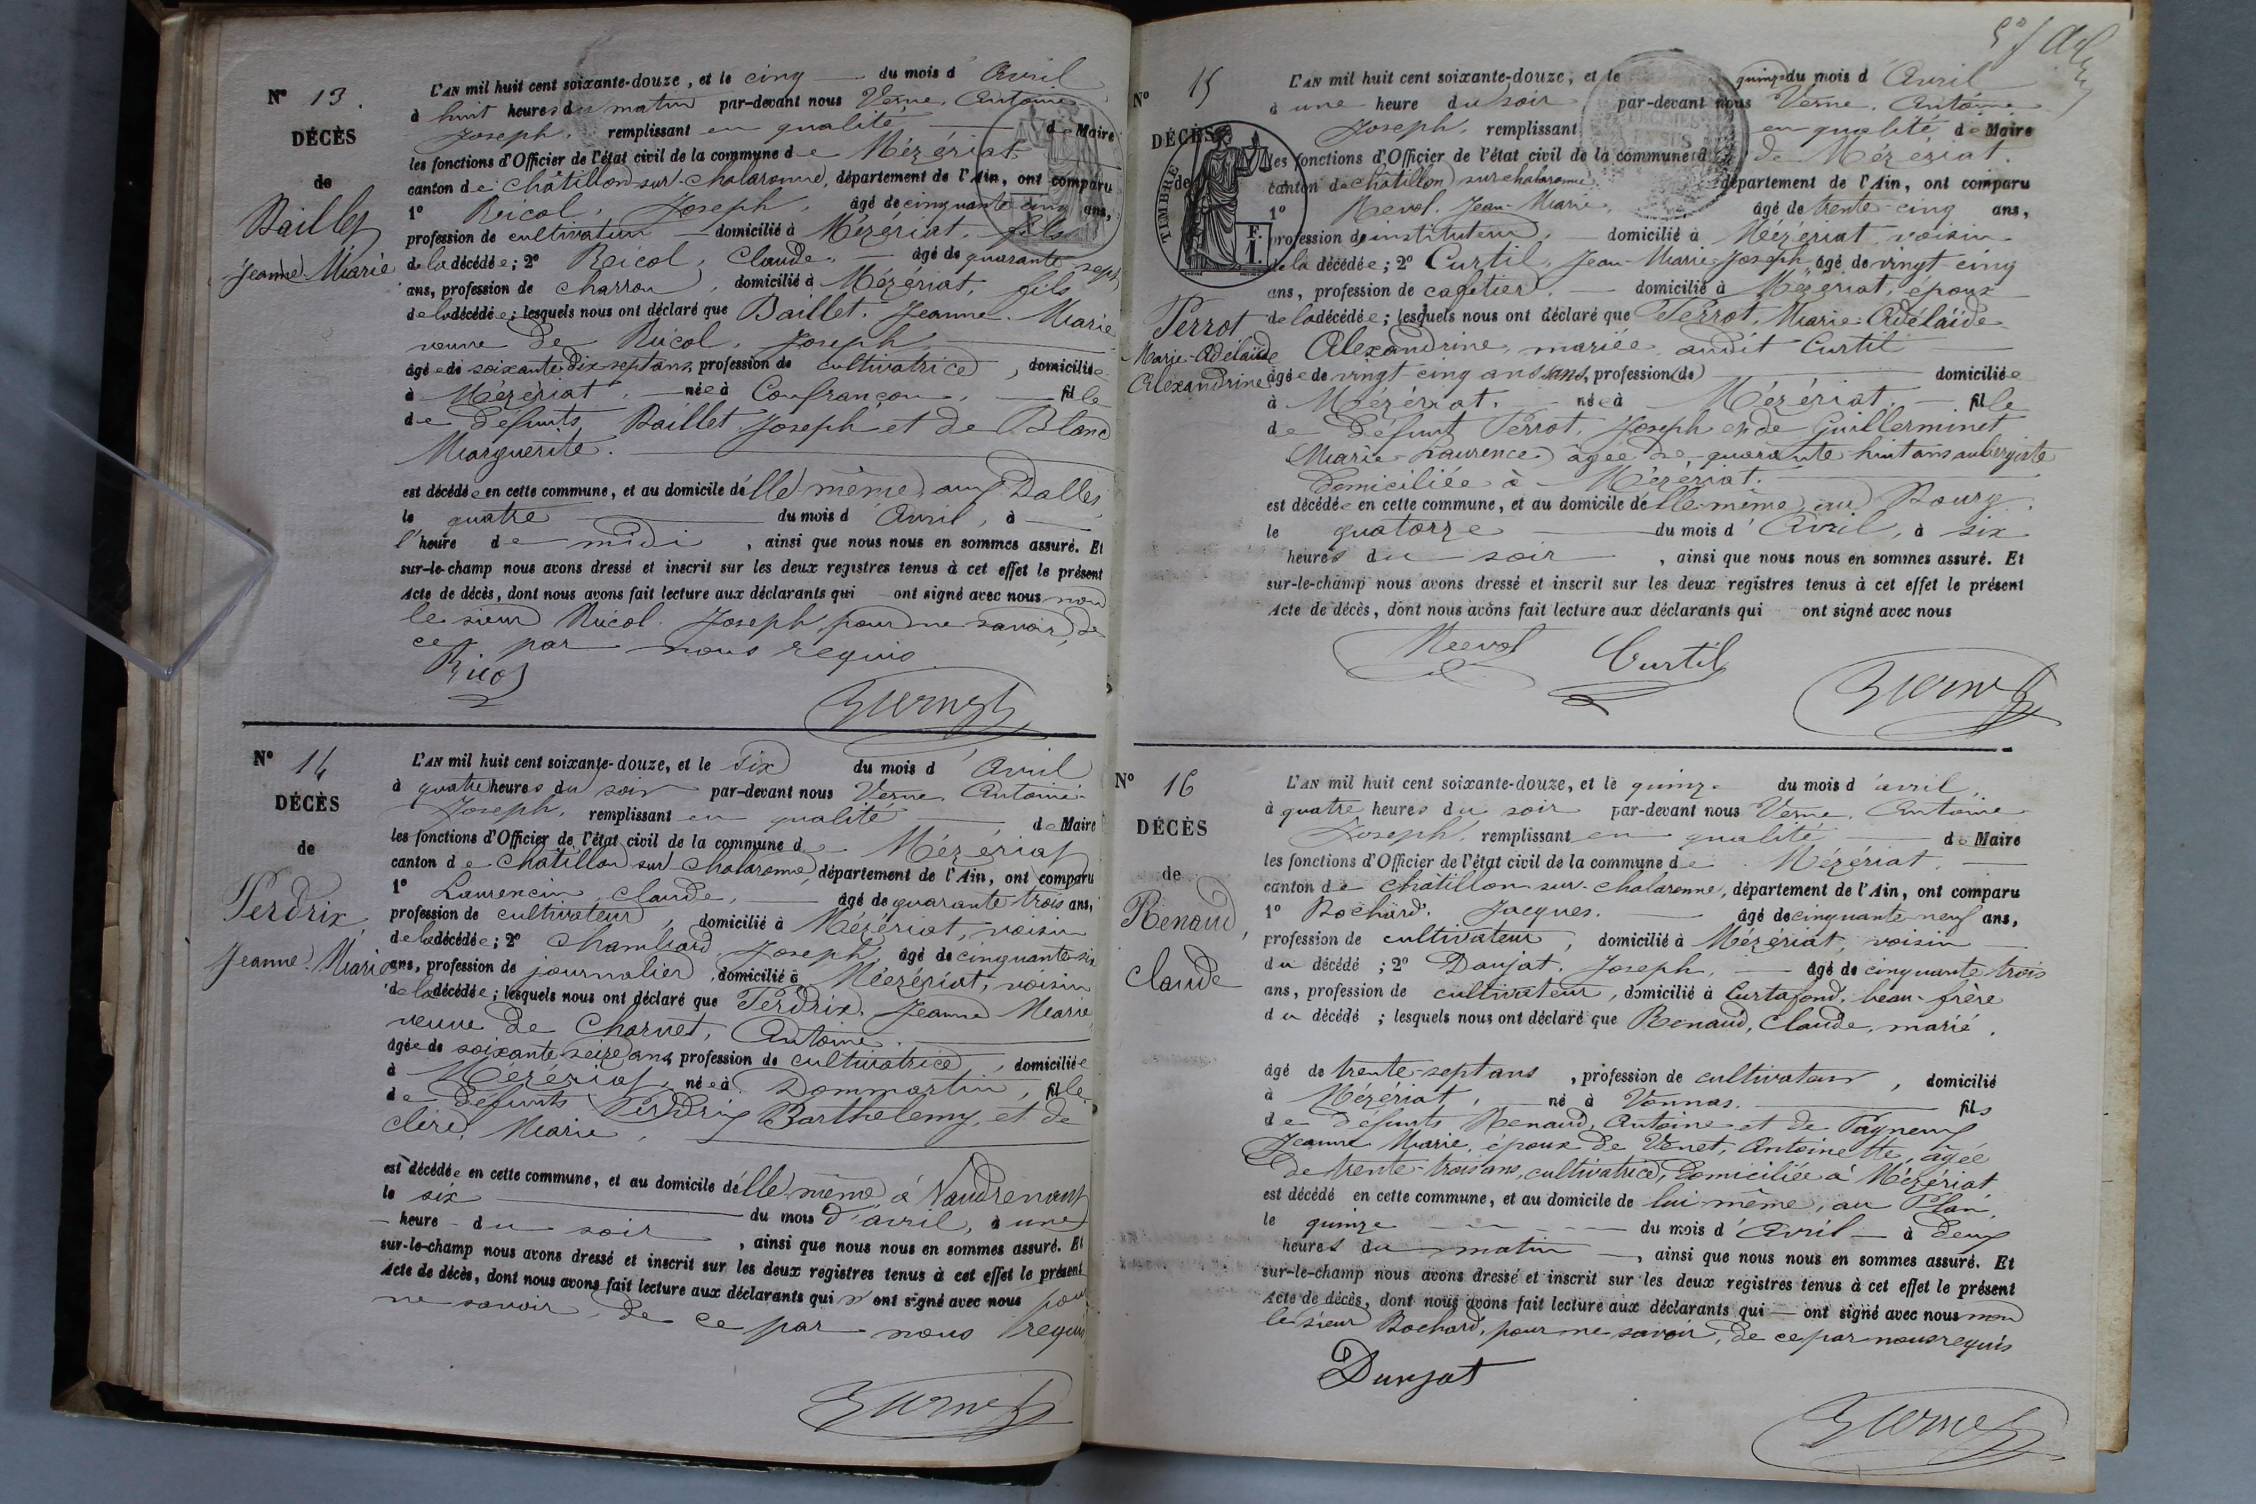 N° 13.
DÉCÈS
de
Baillet
Jeanne Marie
L'AN mil huit cent soixante-douze, et le cinq du mois d'Avril
à huit heures du matin par-devant nous Verne, Antoine
Joseph, remplissant en qualité de Maire
les fonctions d'Officier de l'état civil de la commune de Mézériat
canton de Châtillon sur Chalaronne, département de l'Ain, ont comparu
1° Ricol, Joseph, âgé de cinquante cinq ans,
profession de cultivateur domicilié à Mézériat, fils
de la décédée; 2° Ricol, Claude, âgé de quarante sept
ans, profession de charron, domicilié à Mézériat, fils
de la décédée; lesquels nous ont déclaré que Baillet, Jeanne Marie
veuve de Ricol, Joseph,
âgée de soixante dix sept ans, profession de cultivatrice, domiciliée
à Mézériat, née à Confrançon, fille
de défunts Baillet Joseph et de Blanc
Marguerite.
est décédée en cette commune, et au domicile d'elle même, aux Dalles,
le quatre du mois d'Avril, à
l'heure de midi, ainsi que nous nous en sommes assuré. Et
sur-le-champ nous avons dressé et inscrit sur les deux registres tenus à cet effet le présent
Acte de décès, dont nous avons fait lecture aux déclarants qui ont signé avec nous non
le sieur Ricol Joseph, pour ne savoir, de
ce par nous requis
Ricol
Verne
N° 14
DÉCÈS
de
Perdrix,
Jeanne Marie
L'AN mil huit cent soixante-douze, et le six du mois d'Avril
à quatre heures du soir par-devant nous Verne, Antoine
Joseph, remplissant en qualité de Maire
les fonctions d'Officier de l'état civil de la commune de Mézériat
canton de Châtillon sur Chalaronne, département de l'Ain, ont comparu
1° Laurencin, Claude, âgé de quarante trois ans,
profession de cultivateur, domicilié à Mézériat, voisin
de la décédée; 2° Chambard Joseph, âgé de cinquante six
ans, profession de journalier, domicilié à Mézériat, voisin
de la décédée; lesquels nous ont déclaré que Perdrix, Jeanne Marie,
veuve de Charvet, Antoine.
âgée de soixante seize ans, profession de cultivatrice, domiciliée
à Mézériat, née à Dommartin, fille
de défunts Perdrix Barthelemy, et de
Clere, Marie,
est décédée en cette commune, et au domicile d'elle même à Vaudrenant
le six du mois d'avril, à une
heure du soir, ainsi que nous nous en sommes assuré. Et
sur-le-champ nous avons dressé et inscrit sur les deux registres tenus à cet effet le présent
Acte de décès, dont nous avons fait lecture aux déclarants qui n'ont signé avec nous pour
ne savoir, de ce par nous requis
Verne
N° 15
DÉCÈS
de
TIMBRE
F.
1.
Perrot
Marie-Adélaïde
Alexandrine
L'AN mil huit cent soixante-douze, et le quinze du mois d'Avril
à une heure du soir par-devant nous Verne, Antoine
Joseph, remplissant en qualité de Maire
les fonctions d'Officier de l'état civil de la commune d de Mézériat.
canton de Châtillon sur chalaronne département de l'Ain, ont comparu
1° Revol, Jean-Marie, âgé de trente cinq ans,
profession d'instituteur, domicilié à Mézériat, voisin
de la décédée; 2° Curtil, Jean-Marie-Joseph âgé de vingt-cinq
ans, profession de cafetier, domicilié à Mézériat, époux
de la décédée; lesquels nous ont déclaré que Perrot, Marie-Adélaïde
Alexandrine, mariée audit Curtil
âgée de vingt cinq ans ans, profession (de) domiciliée
à Mézériat, née à Mézériat, fille
de défunt Perrot, Joseph et de Guillerminet
Marie-Laurence, âgée de quarante-huit ans aubergiste
domiciliée à Mézériat.
est décédée en cette commune, et au domicile d'elle-même, au Bourg,
le quatorze du mois d'Avril, à six
heures du soir, ainsi que nous nous en sommes assuré. Et
sur-le-champ nous avons dressé et inscrit sur les deux registres tenus à cet effet le présent
Acte de décès, dont nous avons fait lecture aux déclarants qui ont signé avec nous
Revol Curtil
Verne
N° 16
DÉCÈS
de
Renaud,
Claude
L'AN mil huit cent soixante-douze, et le quinze du mois d'avril,
à quatre heures du soir par-devant nous Verne, Antoine
Joseph, remplissant en qualité de Maire
les fonctions d'Officier de l'état civil de la commune de Mézériat,
canton de Châtillon-sur-Chalaronne, département de l'Ain, ont comparu
1° Bochard, Jacques, âgé de cinquante neuf ans,
profession de cultivateur, domicilié à Mézériat, voisin
du décédé; 2° Daujat, Joseph, âgé de cinquante trois
ans, profession de cultivateur, domicilié à Curtafond, beau-frère
du décédé; lesquels nous ont déclaré que Renaud, Claude, marié,
âgé de trente-sept ans, profession de cultivateur, domicilié
à Mézériat, né à Vonnas, fils
de défunts Renaud, Antoine et de Pagneux
Jeanne Marie, époux de Venet, Antoinette, âgée
de trente-trois ans, cultivatrice, domiciliée à Mézériat
est décédé en cette commune, et au domicile de lui même, au Plan,
le quinze du mois d'Avril à deux
heures du matin, ainsi que nous nous en sommes assuré. Et
sur-le-champ nous avons dressé et inscrit sur les deux registres tenus à cet effet le présent
Acte de décès, dont nous avons fait lecture aux déclarants qui ont signé avec nous non
le sieur Bochard, pour ne savoir, de ce par nous requis
Daujat
Verne